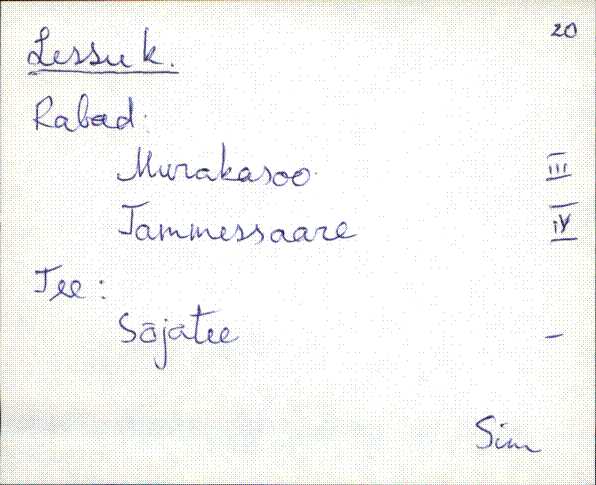 20
Lessu k.
Rabad:
Murakasoo III
Tammessaare IV
Tee:
Sõjatee –
Sim